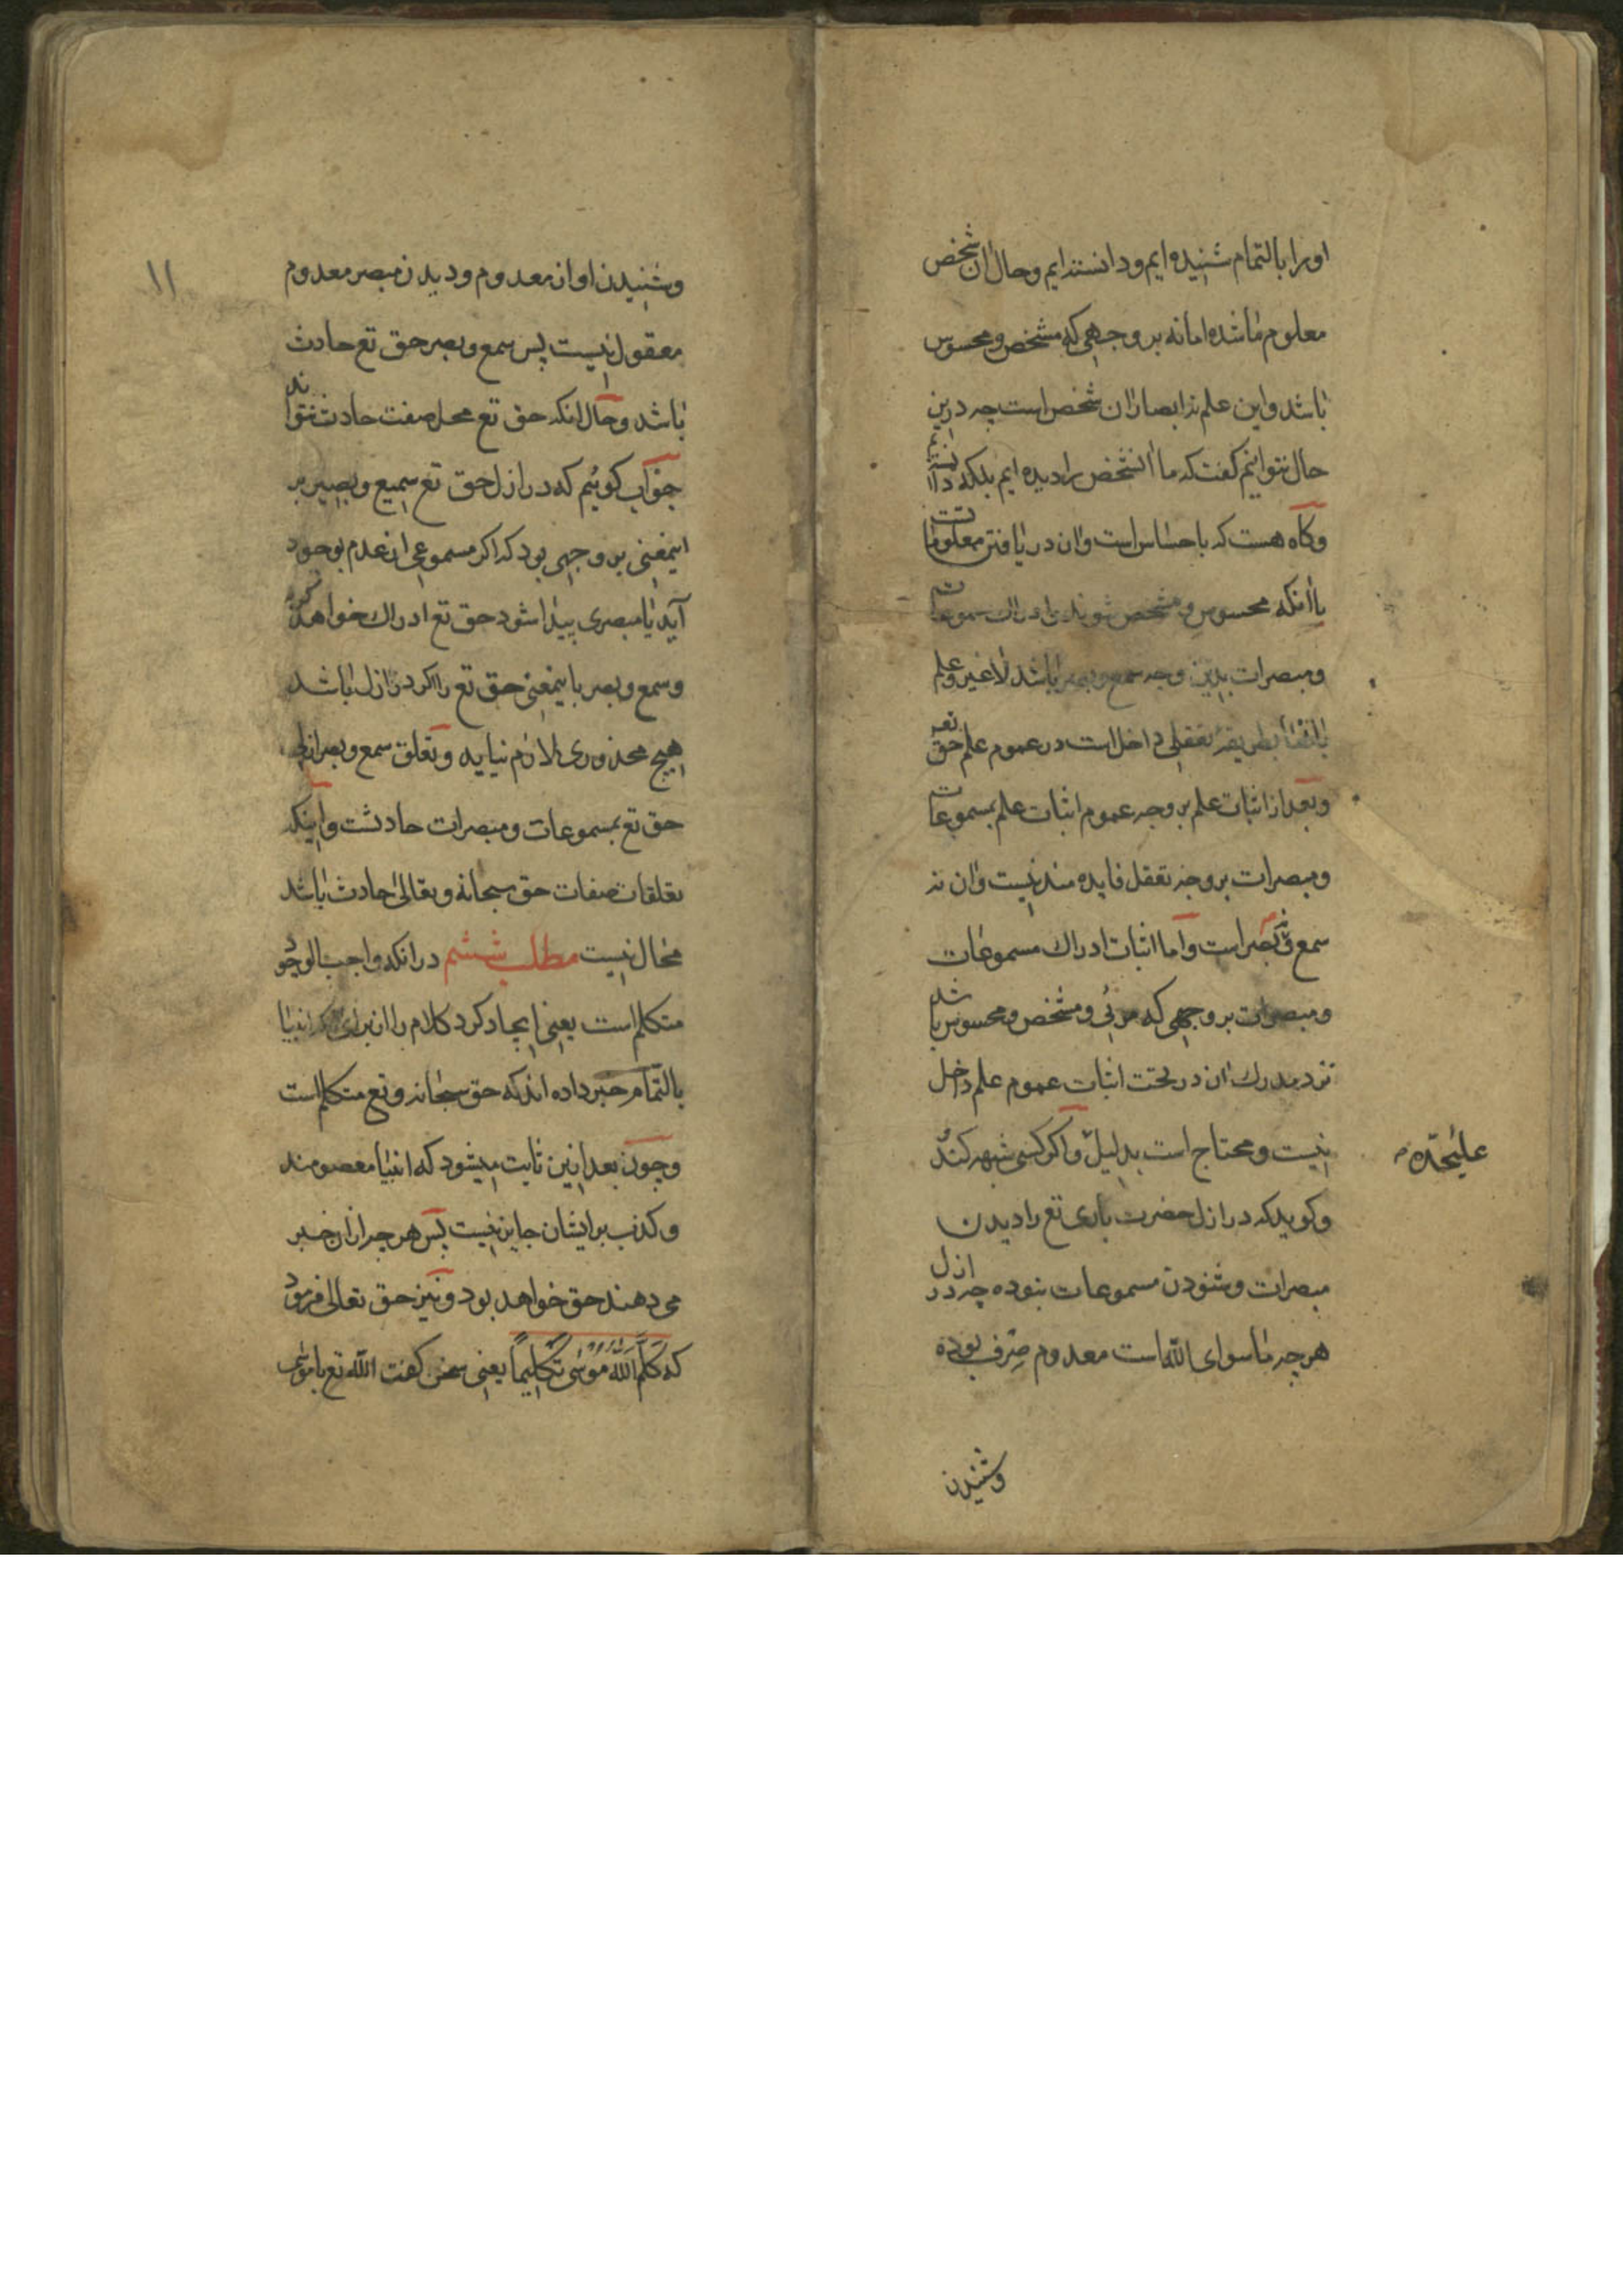 او را بالتمام شنیده ایم و دانسته ایم و حال ان شخص
معلوم ما شده اما نه بر وجهی که مشخص و محسوس
باشد و این علم نه ابصار ان شخص است چه درین
حال نتوانیم کفت که ما انشخص را دیده ایم بلکه دانسته‌ایم
و کاه هست که باحساس است و ان دریافتن معلومات
باانکه محسوس و مشخص شوند و ادراک مسموعات
و مبصرات بدین وجه سمع و بصر باشد لا غیر و علم
بانها بطریقه تعقلی داخل است در عموم علم حق تع
و بعد از اثبات علم بر وجه عموم اثبات علم بمسموعات
و مبصرات بر وجه تعقل فایده مند نیست و ان نه
سمع و نه بصر است و اما اثبات ادراک مسموعات
و مبصرات بر وجهی که مرئی و مشخص و محسوس باشد
نزد مدرک ان در تحت اثبات عموم علم داخل
نیست و محتاج است بدلیل و اکر کسی شبهه کند
علیحّده
و کوید که در ازل حضرت باری تع را دیدن
مبصرات و شنودن مسموعات بنوده چه در ازل
هر چه ماسوای الله است معدوم صِرف بوده
و شنیدن
۱۱
و شنیدن اواز معدوم و دیدن مبصر معدوم
معقول نیست پس سمع و بصر حق تع حادث
باشد و حال انکه حق تع محل صفت حادث نتواند
جواب کوئیم که در ازل حق تع سمیع و بصیر بر
اینمعنی بر وجهی بود که اکر مسموعی از عدم بوجود
آید یا مبصری پیدا شود حق تع ادراک خواهد کرد
و سمع و بصر باینمعنی حق تع را اکر در ازل باشد
هیچ محذوری لازم نیاید و تعلق سمع و بصر
حق تع بمسموعات و مبصرات حادثست و اینکه
تعلقات صفات حق سبحانه و تعالی حادث باشد
محال نیست مطلب ششم در انکه واجب الوجود
متکلم است یعنی ایجاد کرد کلام را از برای که انبیا
بالتّمام خبر داده اند که حق سبحانه و تع متکلم است
و چون بعد ازین ثابت میشود که انبیا معصومند
و کذب بر ایشان جایز نیست پس هر چه از ان خبر
می دهند حق خواهد بود و نیز حق تعالی فرمود
که کَلَّمَ اللّٰه موسٰی تکلیماً یعنی سخن کفت الله تع با موسی